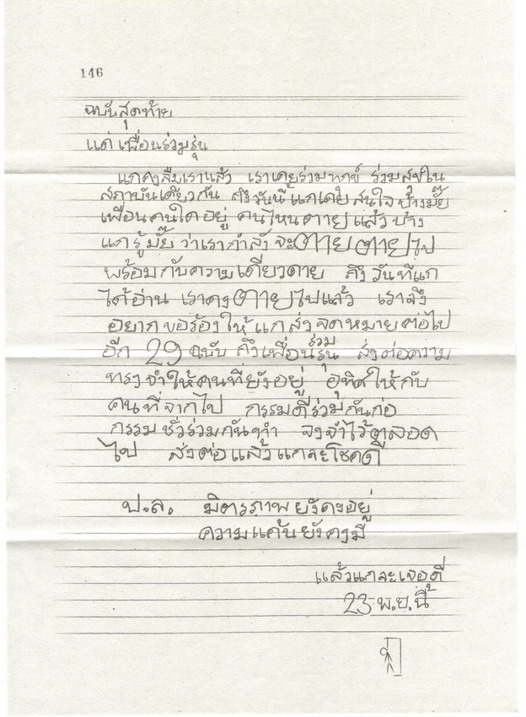 146
ฉบับสุดท้าย
แด่ เพื่อนร่วมรุ่น
แกคงลืมเราแล้ว เราเคยร่วมทุกข์ ร่วมสุขใน
สถาบันเดียวกัน ถึงวันนี้ แกเคยสนใจ บ้างมั๊ย
เพื่อนคนใดอยู่ คนไหนตายแล้ว บ้าง
แกรู้มั๊ย ว่าเรากำลังจะตายตายไป
พร้อมกับความเดียวดาย ถึงวันที่แก
ได้อ่าน เราคงตายไปแล้ว เราจึง
อยากขอร้องให้แกส่งจดหมายต่อไป
อีก 29 ฉบับ ถึงเพื่อนร่วมรุ่น ส่งต่อความ
ทรงจำให้คนที่ยังอยู่ อุทิศให้กับ
คนที่จากไป กรรมดีร่วมกันก่อ
กรรมชั่วร่วมกันทำ จงจำไว้ตลอด
ไป ส่งต่อแล้วแกจะโชคดี
ป.ล. มิตรภาพยังคงอยู่
ความแค้นยังคงมี
แล้วแกจะเจอดี
23 พ.ย.นี้